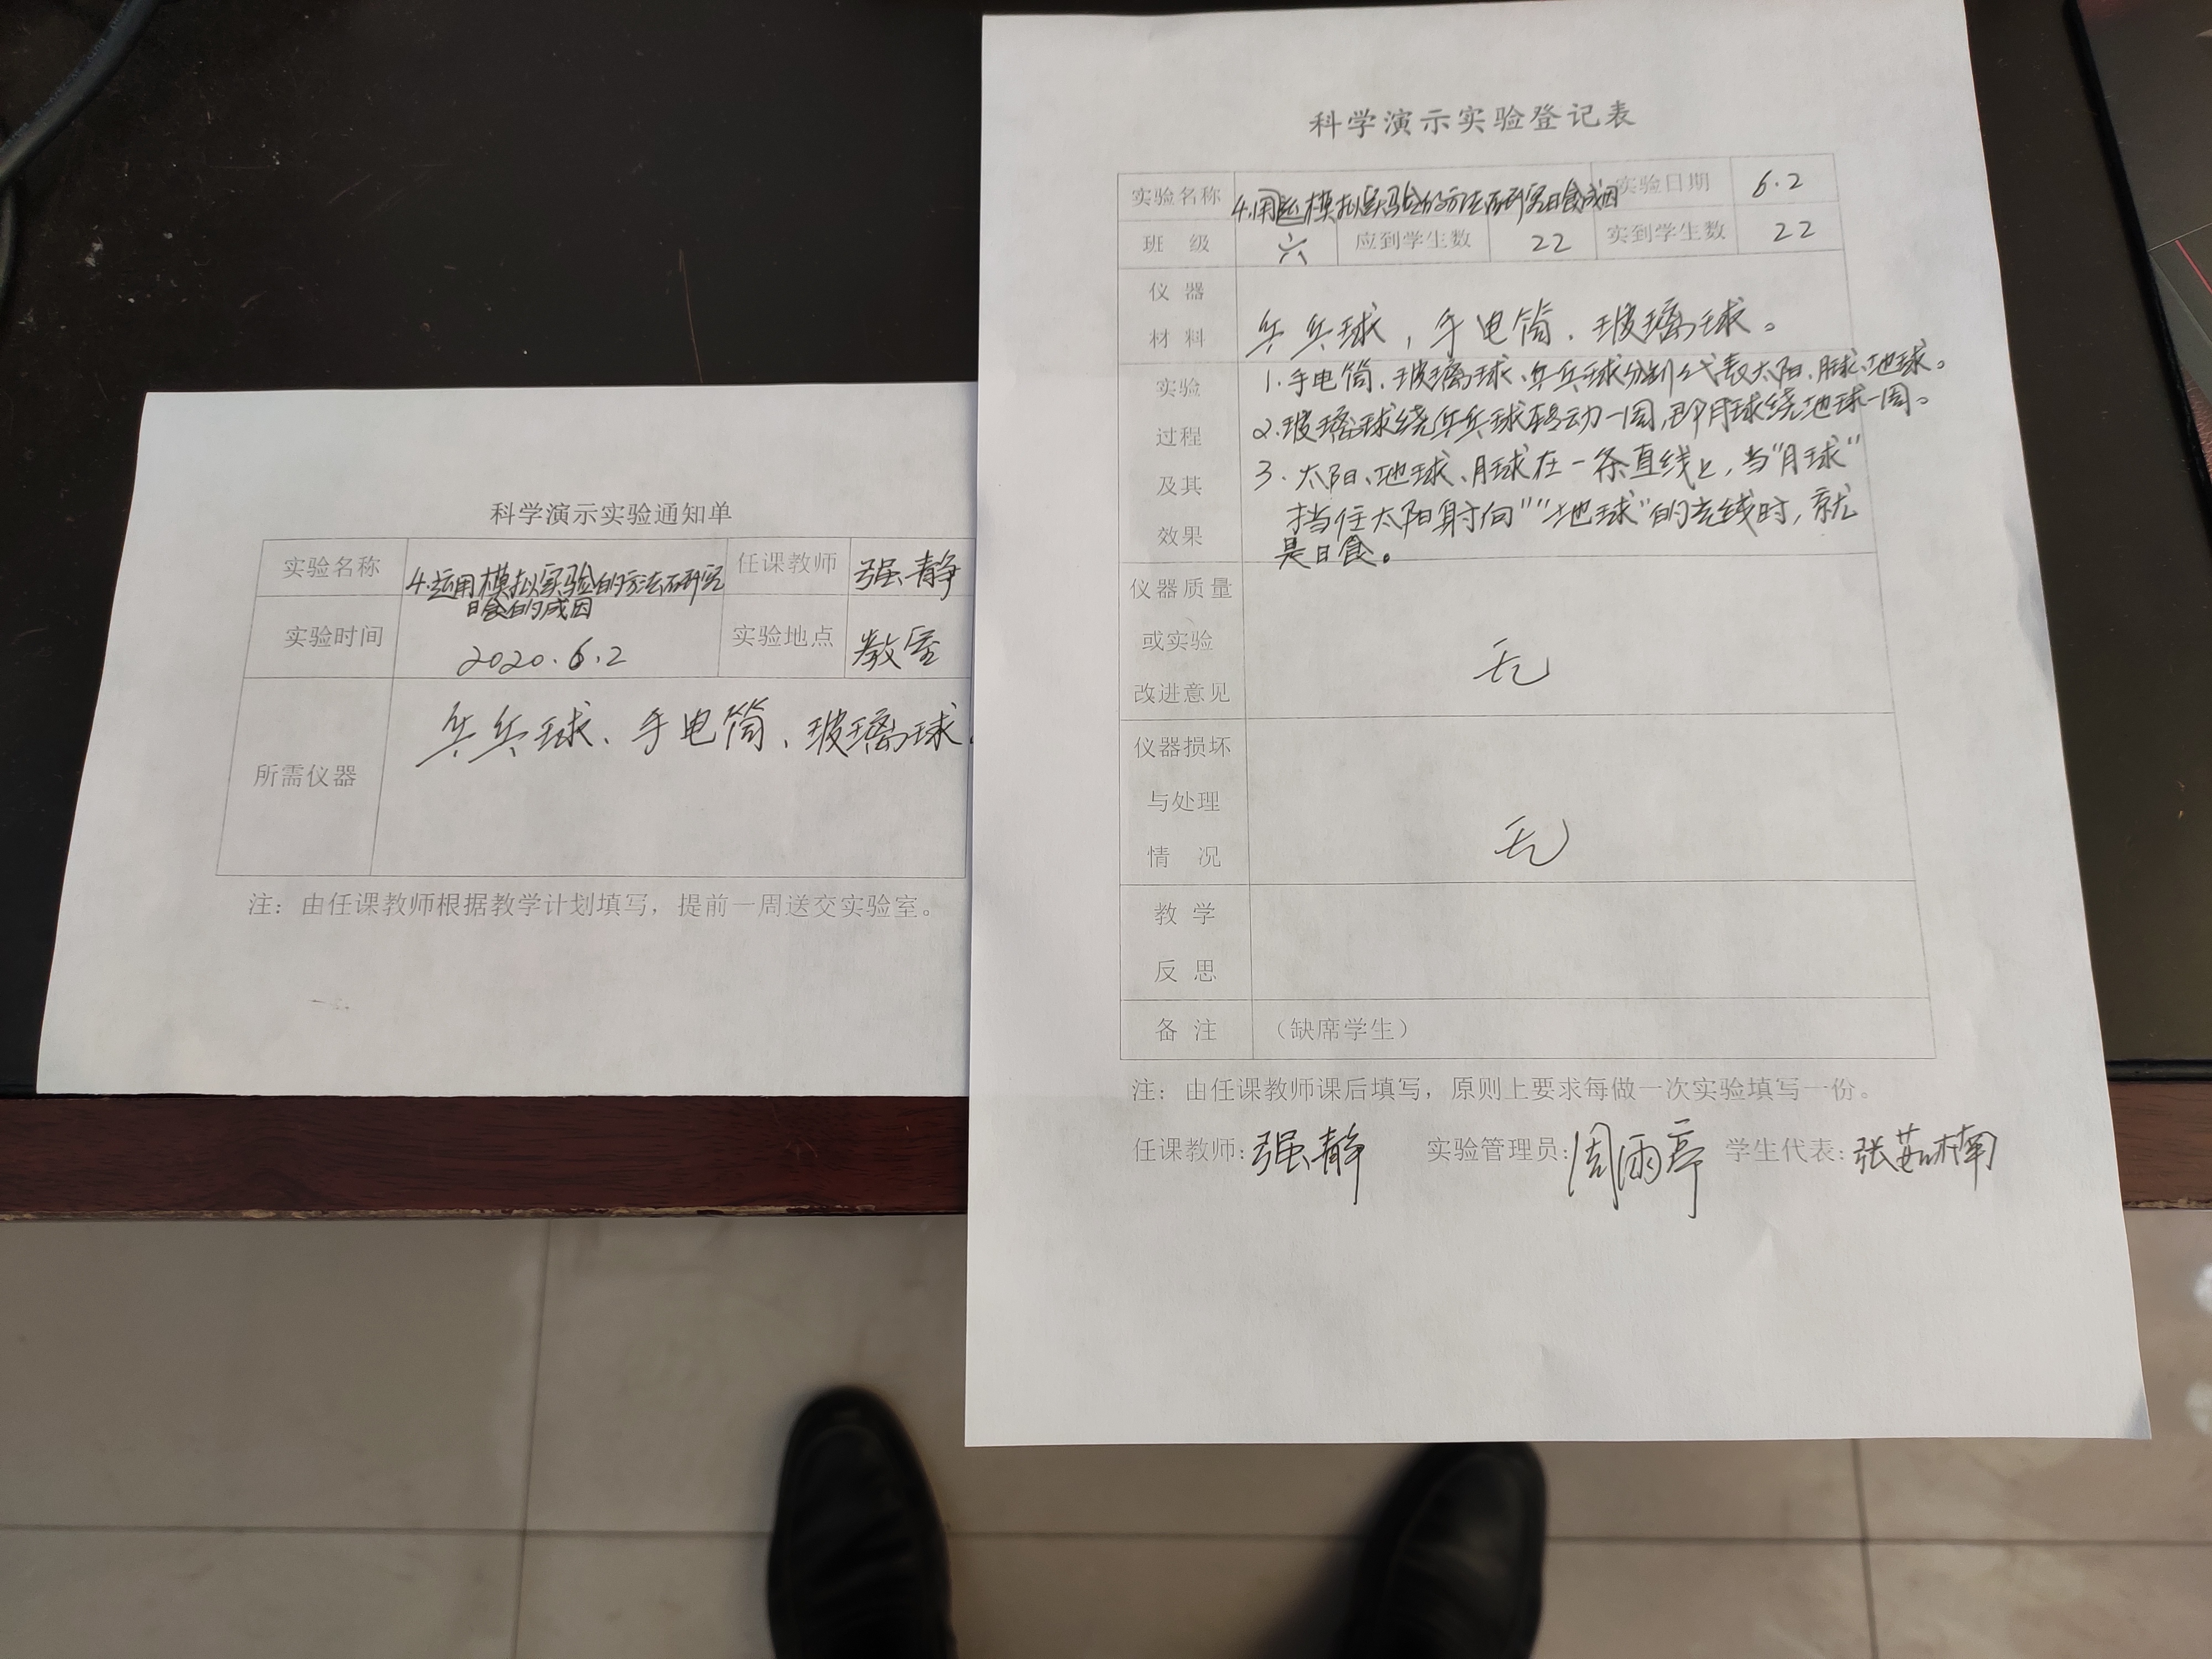 科学演示实验通知单
实验名称 4.运用模拟实验的方法研究日食的成因 任课教师 强静
实验时间 2020.6.2 实验地点 教室
所需仪器 乒乓球、手电筒、玻璃球。
注：由任课教师根据教学计划填写，提前一周送交实验室。
科学演示实验登记表
实验名称 4.用运模拟实验的方法研究日食成因 实验日期 6.2
班级 六 应到学生数 22 实到学生数 22
仪器材料 乒乓球，手电筒、玻璃球。
实验过程及其效果
1.手电筒、玻璃球、乒乓球分别代表太阳、月球、地球。
2.玻璃球绕乒乓球转动一周，即月球绕地球一周。
3.太阳、地球、月球在一条直线上，当“月球”
挡住太阳射向“”地球”的光线时，就
是日食。
仪器质量或实验改进意见 无
仪器损坏与处理情况 无
教学反思
备注 （缺席学生）
注：由任课教师课后填写，原则上要求每做一次实验填写一份。
任课教师：强静 实验管理员：周雨亭 学生代表：张茹楠